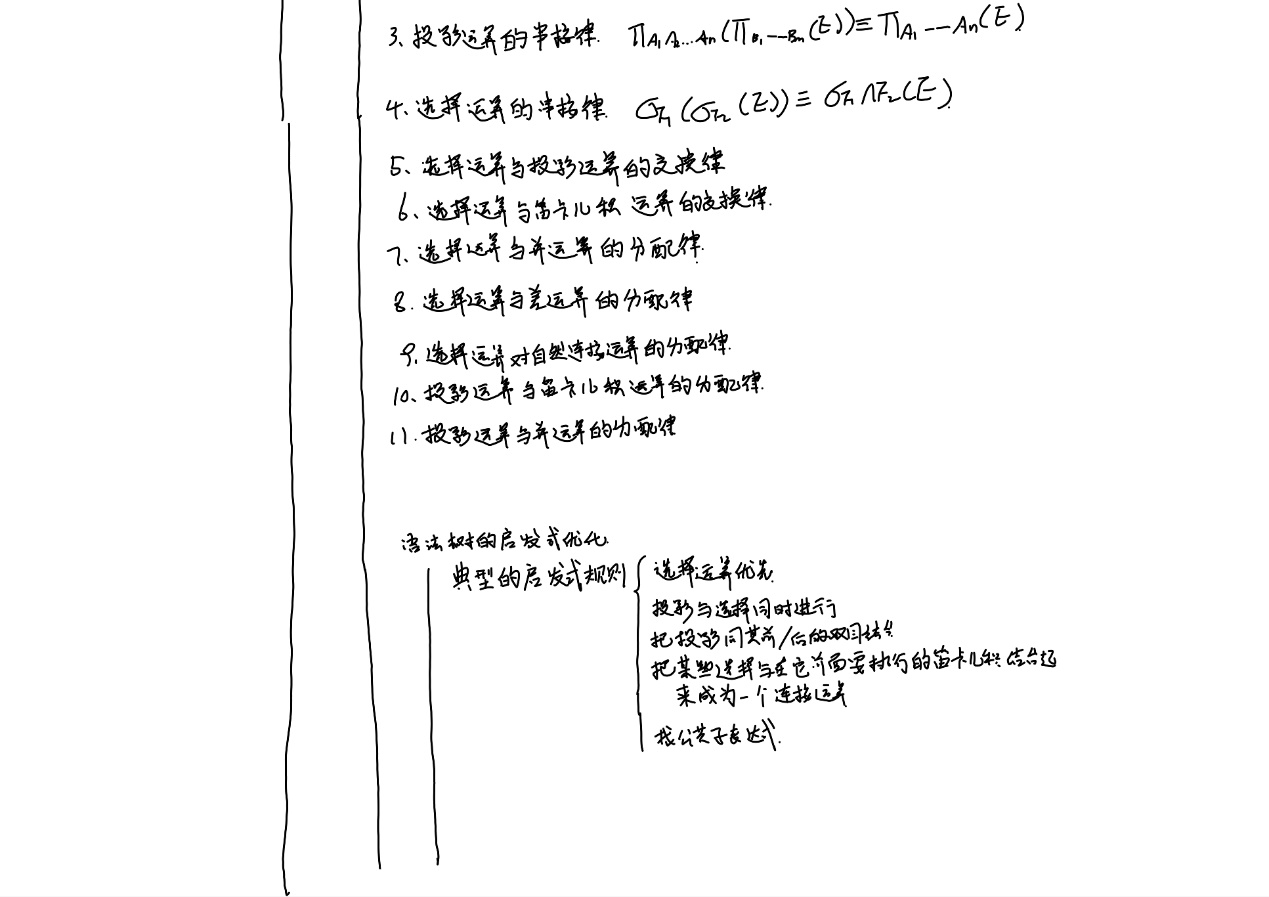 3、投影运算的串接律. Π_{A₁A₂...An}(Π_{B₁---Bm}(E))≡Π_{A₁---An}(E)
4、选择运算的串接律. σ_{F₁}(σ_{F₂}(E))≡σ_{F₁∧F₂}(E)
5、选择运算与投影运算的交换律
6、选择运算与笛卡儿积运算的交换律.
7、选择运算与并运算的分配律.
8.选择运算与差运算的分配律
9.选择运算对自然连接运算的分配律.
10、投影运算与笛卡儿积运算的分配律.
11.投影运算与并运算的分配律
语法树的启发式优化
典型的启发式规则
选择运算优先
投影与选择同时进行
把投影同其前/后的双目结合
把某些选择与在它前面要执行的笛卡儿积结合起
来成为一个连接运算
找公共子表达式.